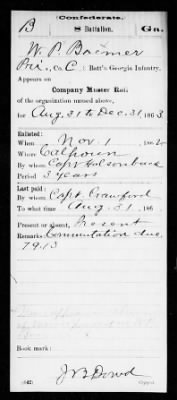 Confederate.
B 8 Battalion. Ga.
W. P. Boxmer
Pvt., Co. C, 8 Batt'n Georgia Infantry.
Appears on
Company Muster Roll
of the organization named above,
for Aug. 31 to Dec. 31, 1863
Enlisted:
When Nov. 1, 186
Where Calhoun
By whom Capt. Holsonback
Period 3 years
Last paid:
By whom Capt. Crawford
To what time Aug. 31, 186
Present or absent, Present
Remarks: Commutation due
79.13
Book mark:
J B Dowd
(642) Copyist.